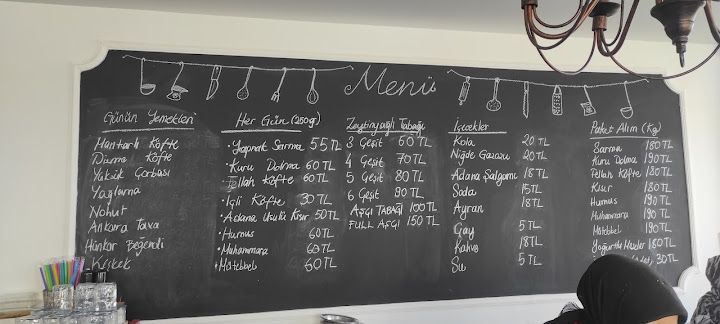 Menü
Günün Yemekleri
Mantarlı Köfte
Dürme Köfte
Yüksük Çorbası
Yağlama
Nohut
Ankara Tava
Hünkar Beğendi
Keşkek
Her Gün (250gr)
Yaprak Sarma 55 TL
Kuru Dolma 60 TL
Fellah Köfte 60 TL
İçli Köfte 30 TL
Adana Usulü Kısır 50 TL
Humus 60 TL
Muhammara 60 TL
Mütebbel 60 TL
Zeytinyağlı Tabağı
3 Çeşit 60 TL
4 Çeşit 70 TL
5 Çeşit 80 TL
6 Çeşit 90 TL
AŞÇI TABAĞI 100 TL
FULL AŞÇI 150 TL
İçecekler
Kola 20 TL
Niğde Gazozu 20 TL
Adana Şalgamı 18 TL
Soda 15 TL
Ayran 18 TL
Çay 5 TL
Kahve 18 TL
Su 5 TL
Paket Alım (Kg)
Sarma 180 TL
Kuru Dolma 190 TL
Fellah Köfte 180 TL
Kısır 180 TL
Humus 190 TL
Muhammara 190 TL
Mütebbel 190 TL
Yoğurtlu Mezeler 180 TL
30 TL